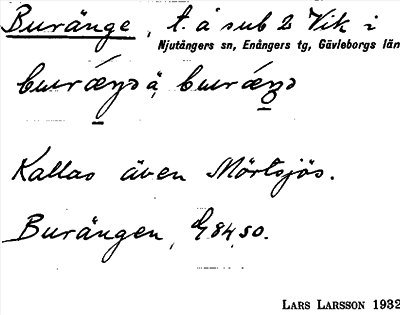 Buränge, t. å sub 2 Vik i
Njutångers sn, Enångers tg, Gävleborgs län
Kallas även Mörtsjös.
Burängen, G 84,50.
LARS LARSSON 1932